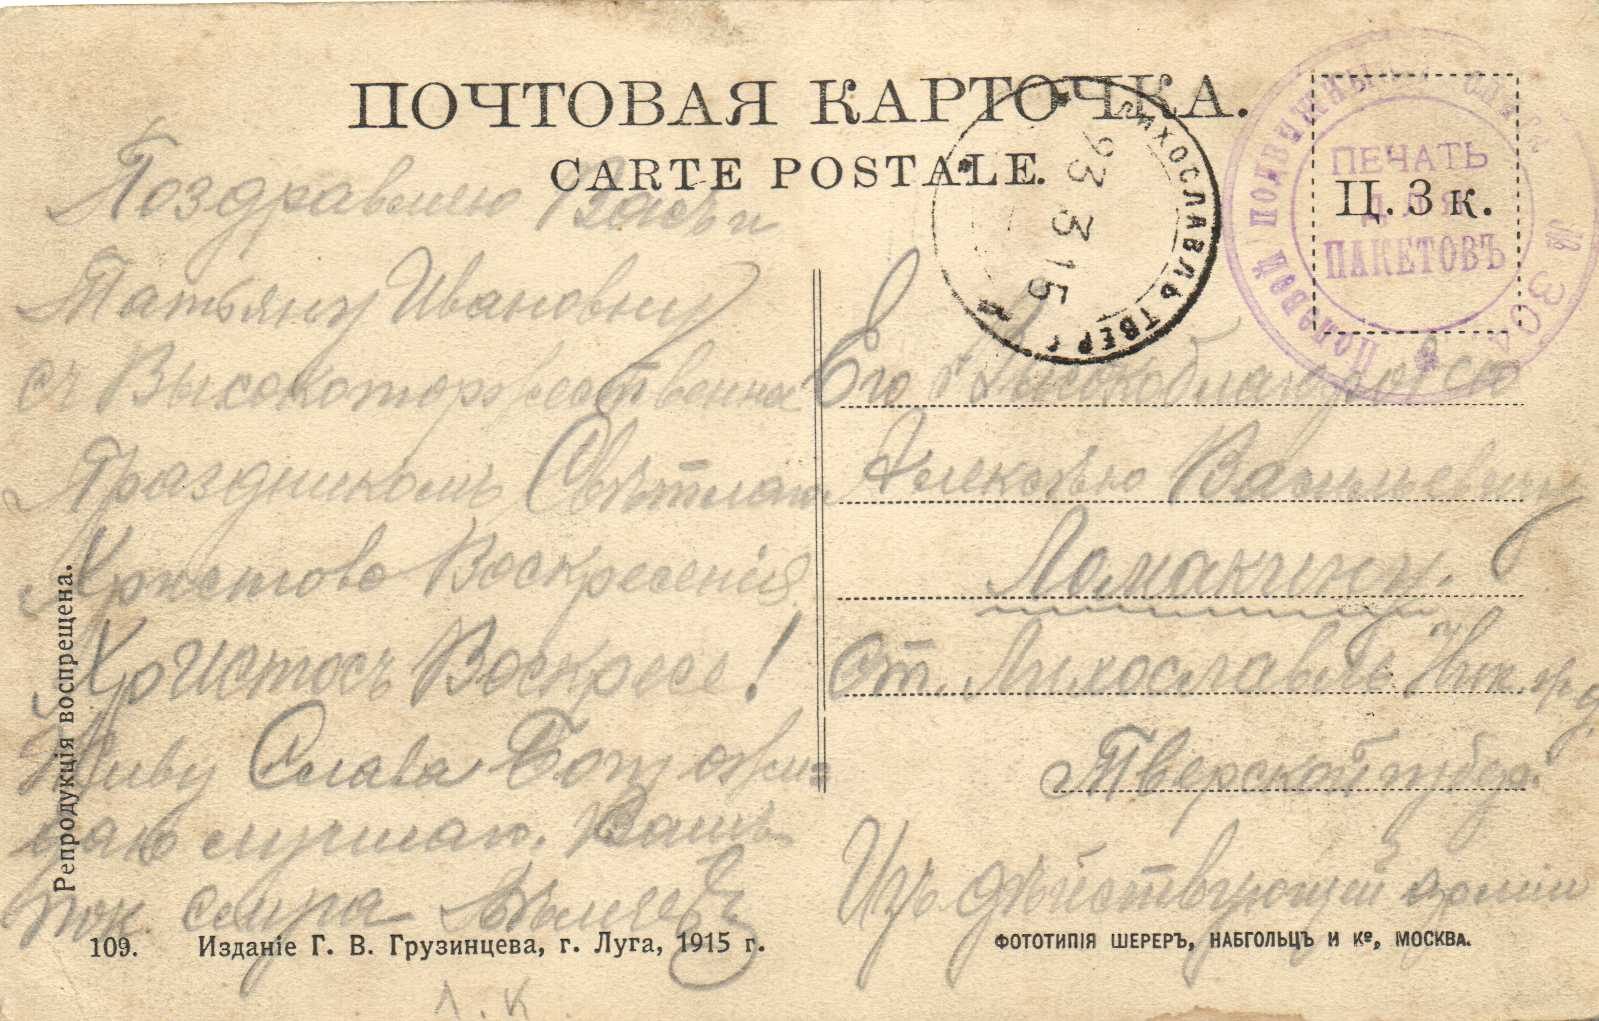 ПОЧТОВАЯ КАРТОЧКА.
CARTE POSTALE.
Ц. 3 к.
ПЕЧАТЬ
ДЛЯ
ПАКЕТОВЪ
ЛИХОСЛАВЛЬ ТВЕР
23 3 15
Поздравляю Васъ и
Татьяну Ивановну
съ Высокоторжественна
Праздникомъ Свѣтлаго
Христова Воскресенія
Христосъ Воскресе!
Живу Слава Богу ожи-
даю лучшаго. Вашъ
Его Высокоблагородію
Алексѣю Васильевичу
Ломакину.
Ст. Лихославль Ник. ж. д.
Тверской губер.
Изъ дѣйствующей арміи
Репродукція воспрещена.
109. Изданіе Г. В. Грузинцева, г. Луга, 1915 г.
ФОТОТИПІЯ ШЕРЕРЪ, НАБГОЛЬЦЪ И Кº, МОСКВА.
Л. К